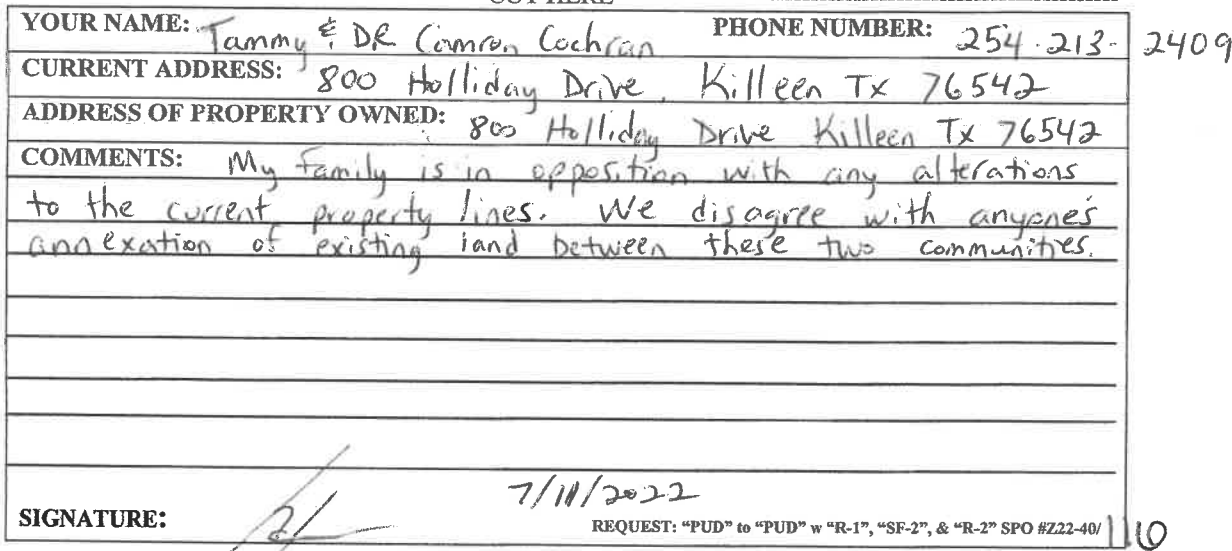 CUT HERE
YOUR NAME: Tammy & DR Camron Cochran PHONE NUMBER: 254-213-2409
CURRENT ADDRESS: 800 Holliday Drive, Killeen Tx 76542
ADDRESS OF PROPERTY OWNED: 800 Holliday Drive Killeen Tx 76542
COMMENTS: My family is in opposition with any alterations
to the current property lines. We disagree with anyone's
annexation of existing land between these two communities.
7/11/2022
SIGNATURE:
REQUEST: "PUD" to "PUD" w "R-1", "SF-2", & "R-2" SPO #Z22-40/